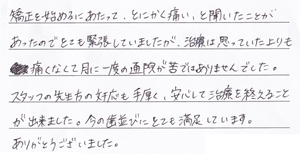 矯正を始めるにあたって、とにかく痛い、と聞いたことが
あったのでとても緊張していましたが、治療は思っていたよりも
痛くなくて月に一度の通院が苦ではありませんでした。
スタッフの先生方の対応も手厚く、安心して治療を終えること
が出来ました。今の歯並びにとても満足しています。
ありがとうございました。